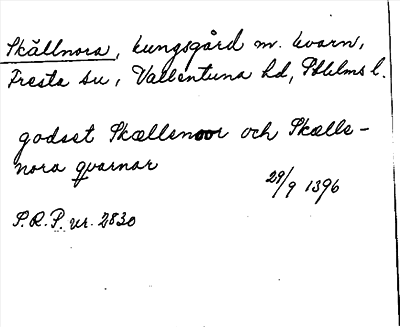 Skällnora, kungsgård m. kvarn,
Fresta sn, Vallentuna hd, Sthlms l.
godset Skællenoor och Skælle-
nora qvarnar
29/9 1396
S.R.P. nr. 2830